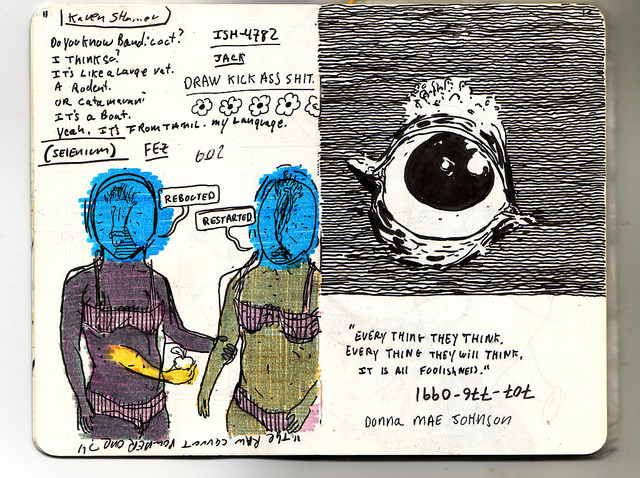 " Karen Shannon
Do you know Bandicoot?
I THINK SO?
IT'S Like a Large rat.
A Rodent.
OR Catamaran?
IT'S a Boat.
Yeah. IT'S FROM TAMIL. my Language.
(SELENIUM)
FEZ
602
ISH-4782
JACK
DRAW KICK ASS SHIT.
REBOOTED
RESTARTED
"THE RAW
"EVERY THING THEY THINK,
EVERY THING THEY WILL THINK,
IT IS ALL
707-776-0991
Donna MAE JOHNSON